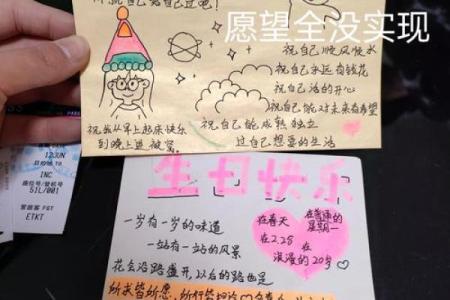 愿望全没实现
祝自己顺风顺水
祝自己永远有钱花
祝自己活的开心
祝自己能对未来有希望
祝我从早上起床快乐
到晚上进被窝
祝自己能成熟独立
过自己想要的生活
12JUN
INC
座位号/登机号
51L/001
ETKT
生日快乐
一岁有一岁的味道
一站有一站的风景
花会沿路盛开,以后的路也是
在春天
在2.28
在
星期一
浪漫的20岁